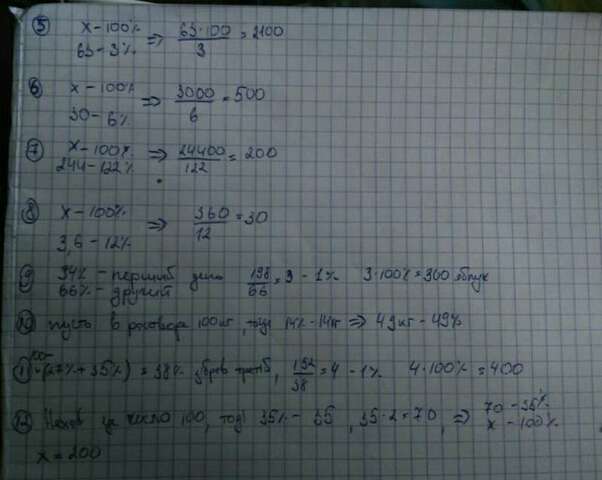 5 x - 100% => 63·100 / 3 = 2100
63 - 3%
6 x - 100% => 3000 / 6 = 500
30 - 6%
7 x - 100% => 24400 / 122 = 200
244 - 122%
8 x - 100% => 360 / 12 = 30
3,6 - 12%
9 34% - перший день 198 / 66 = 3 - 1% 3·100% = 300 яблук
66% - другий
10 пусть в розтворе 100кг, тоді 14% - 14кг => 49кг - 49%
11 100 - (27% + 35%) = 38% зібрав третій, 152 / 38 = 4 - 1% 4·100% = 400
12 Нехай це число 100, тоді 35% - 35, 35·2 = 70, => 70 - 35%
x - 100%
x = 200